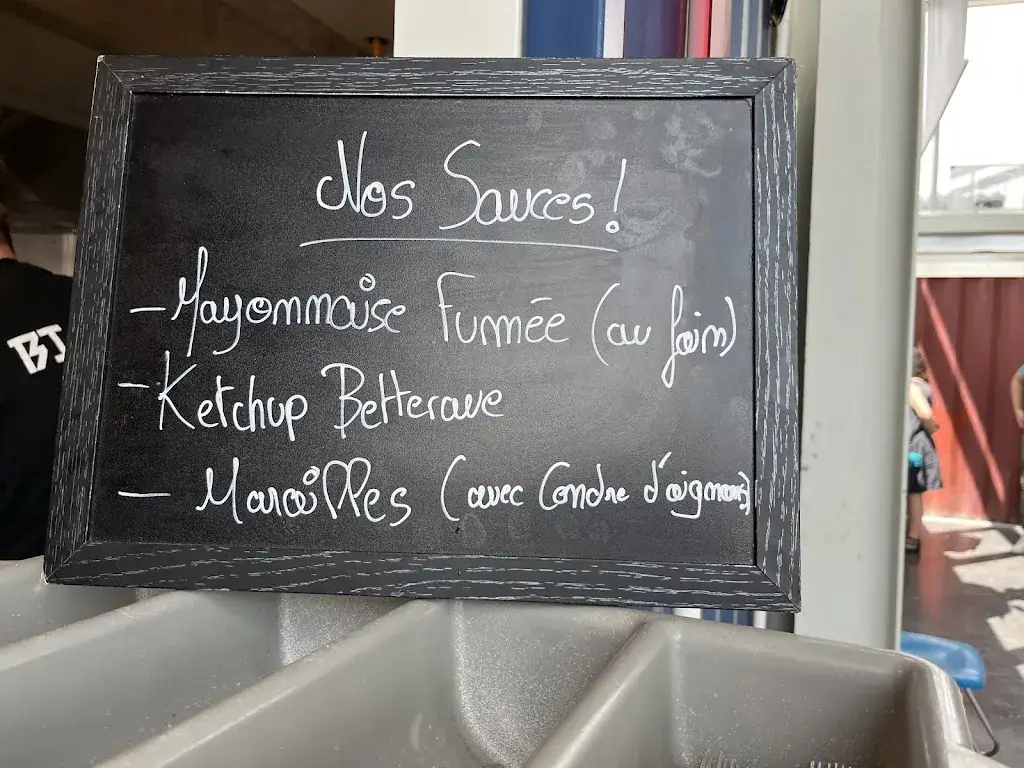 Nos Sauces!
- Mayonnaise Fumée (au foin)
- Ketchup Betterave
- Maroilles (avec Cendre d'oignons)
BJ